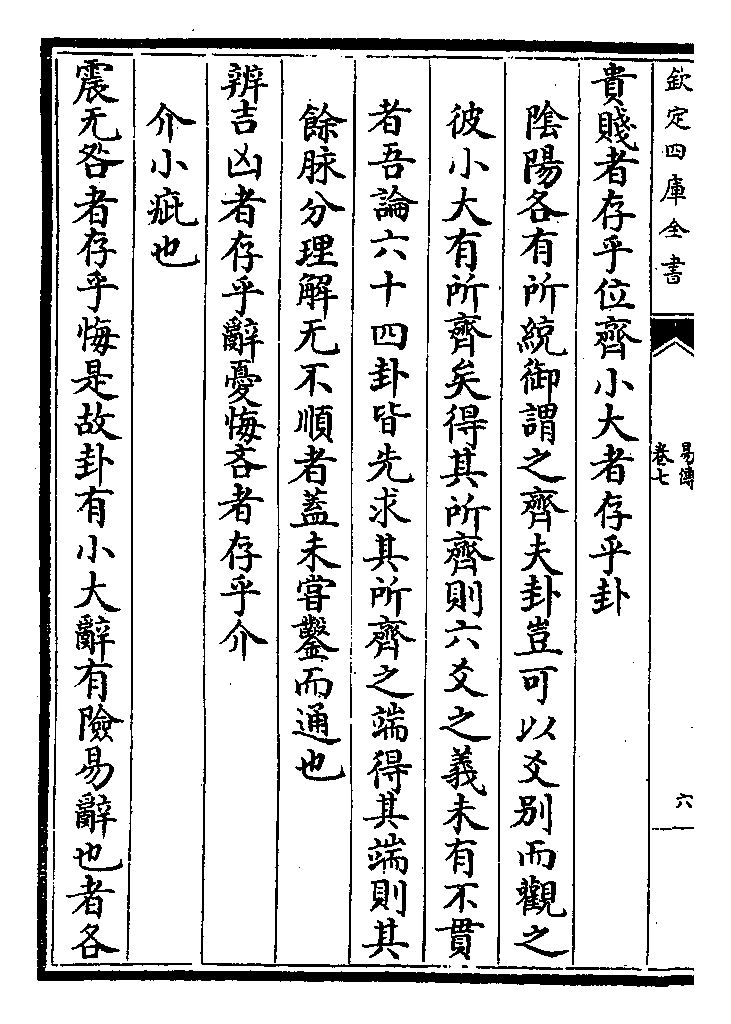 欽定四庫全書
易傳
卷七
六
貴賤者存乎位齊小大者存乎卦
陰陽各有所統御謂之齊夫卦豈可以爻別而觀之
彼小大有所齊矣得其所齊則六爻之義未有不貫
者吾論六十四卦皆先求其所齊之端得其端則其
餘脉分理解无不順者蓋未甞鑿而通也
辨吉凶者存乎辭憂悔吝者存乎介
介小疵也
震无咎者存乎悔是故卦有小大辭有險易辭也者各